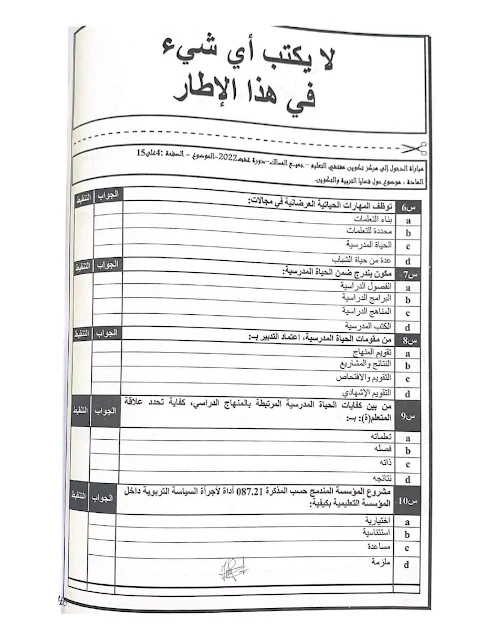 لا يكتب أي شيء
في هذا الإطار
مباراة الدخول إلى مركز تكوين مفتشي التعليم - جميع المسالك-دورة غشت2022-الموضوع - الصفحة :4على15
المادة : موضوع حول قضايا التربية والتكوين.
س6 توظف المهارات الحياتية العرضانية في مجالات: الجواب التنقيط
a بناء التعلمات
b محددة للتعلمات
c الحياة المدرسية
d عدة من حياة الشباب
س7 مكون يندرج ضمن الحياة المدرسية: الجواب التنقيط
a الفصول الدراسية
b البرامج الدراسية
c المناهج الدراسية
d الكتب المدرسية
س8 من مقومات الحياة المدرسية، اعتماد التدبير بـ: الجواب التنقيط
a تقويم المنهاج
b النتائج والمشاريع
c التقويم والافتحاص
d التقويم الإشهادي
س9 من بين كفايات الحياة المدرسية المرتبطة بالمنهاج الدراسي، كفاية تحدد علاقة الجواب التنقيط
المتعلم(ة): بـ:
a تعلماته
b فصله
c ذاته
d نتائجه
س10 مشروع المؤسسة المندمج حسب المذكرة 087.21 أداة لأجرأة السياسة التربوية داخل الجواب التنقيط
المؤسسة التعليمية بكيفية:
a اختيارية
b استئناسية
c مساعدة
d ملزمة